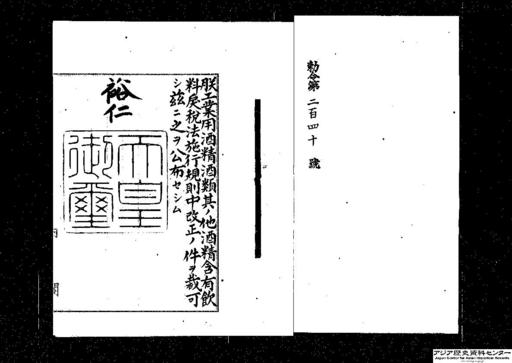 勅令第二百四十號
朕工業用酒精酒類其ノ他酒精含有飲
料戻税法施行規則中改正ノ件ヲ裁可
シ茲ニ之ヲ公布セシム
裕仁
天皇
御璽
アジア歴史資料センター
Japan Center for Asian Historical Records